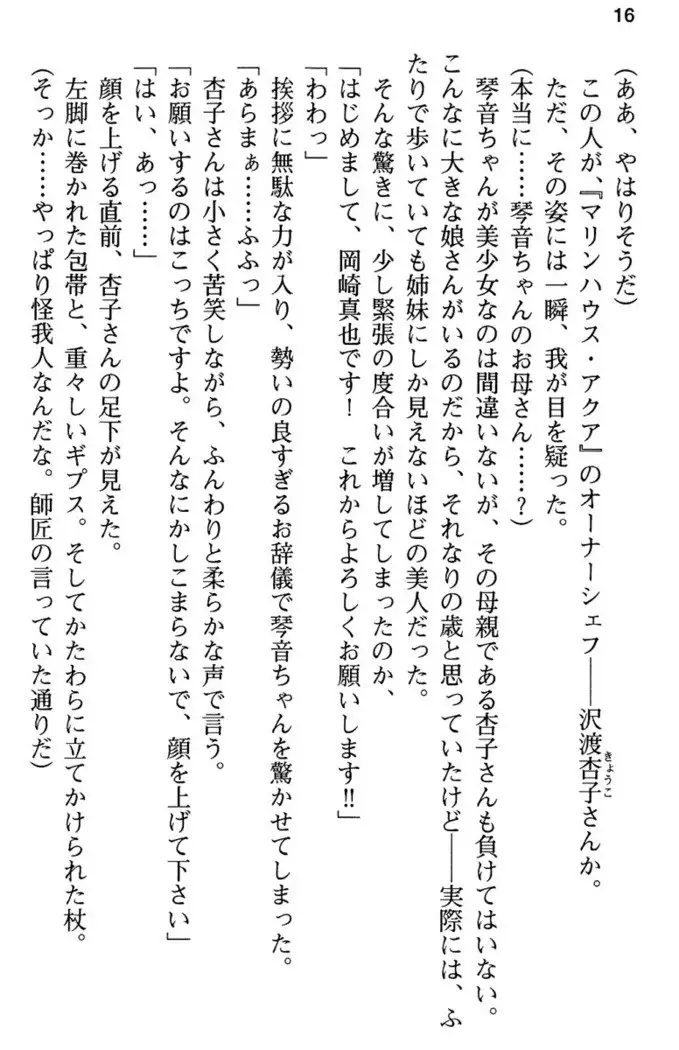 16
(ああ、やはりそうだ)
この人が、『マリンハウス・アクア』のオーナーシェフ――沢渡杏子さんか。
きょうこ
ただ、その姿には一瞬、我が目を疑った。
(本当に……琴音ちゃんのお母さん……?)
琴音ちゃんが美少女なのは間違いないが、その母親である杏子さんも負けてはいない。
こんなに大きな娘さんがいるのだから、それなりの歳と思っていたけど――実際には、ふ
たりで歩いていても姉妹にしか見えないほどの美人だった。
そんな驚きに、少し緊張の度合いが増してしまったのか、
「はじめまして、岡崎真也です! これからよろしくお願いします!!」
「わわっ」
挨拶に無駄な力が入り、勢いの良すぎるお辞儀で琴音ちゃんを驚かせてしまった。
「あらまぁ……ふふっ」
杏子さんは小さく苦笑しながら、ふんわりと柔らかな声で言う。
「お願いするのはこっちですよ。そんなにかしこまらないで、顔を上げて下さい」
「はい、あっ……」
顔を上げる直前、杏子さんの足下が見えた。
左脚に巻かれた包帯と、重々しいギプス。そしてかたわらに立てかけられた杖。
(そっか……やっぱり怪我人なんだな。師匠の言っていた通りだ)